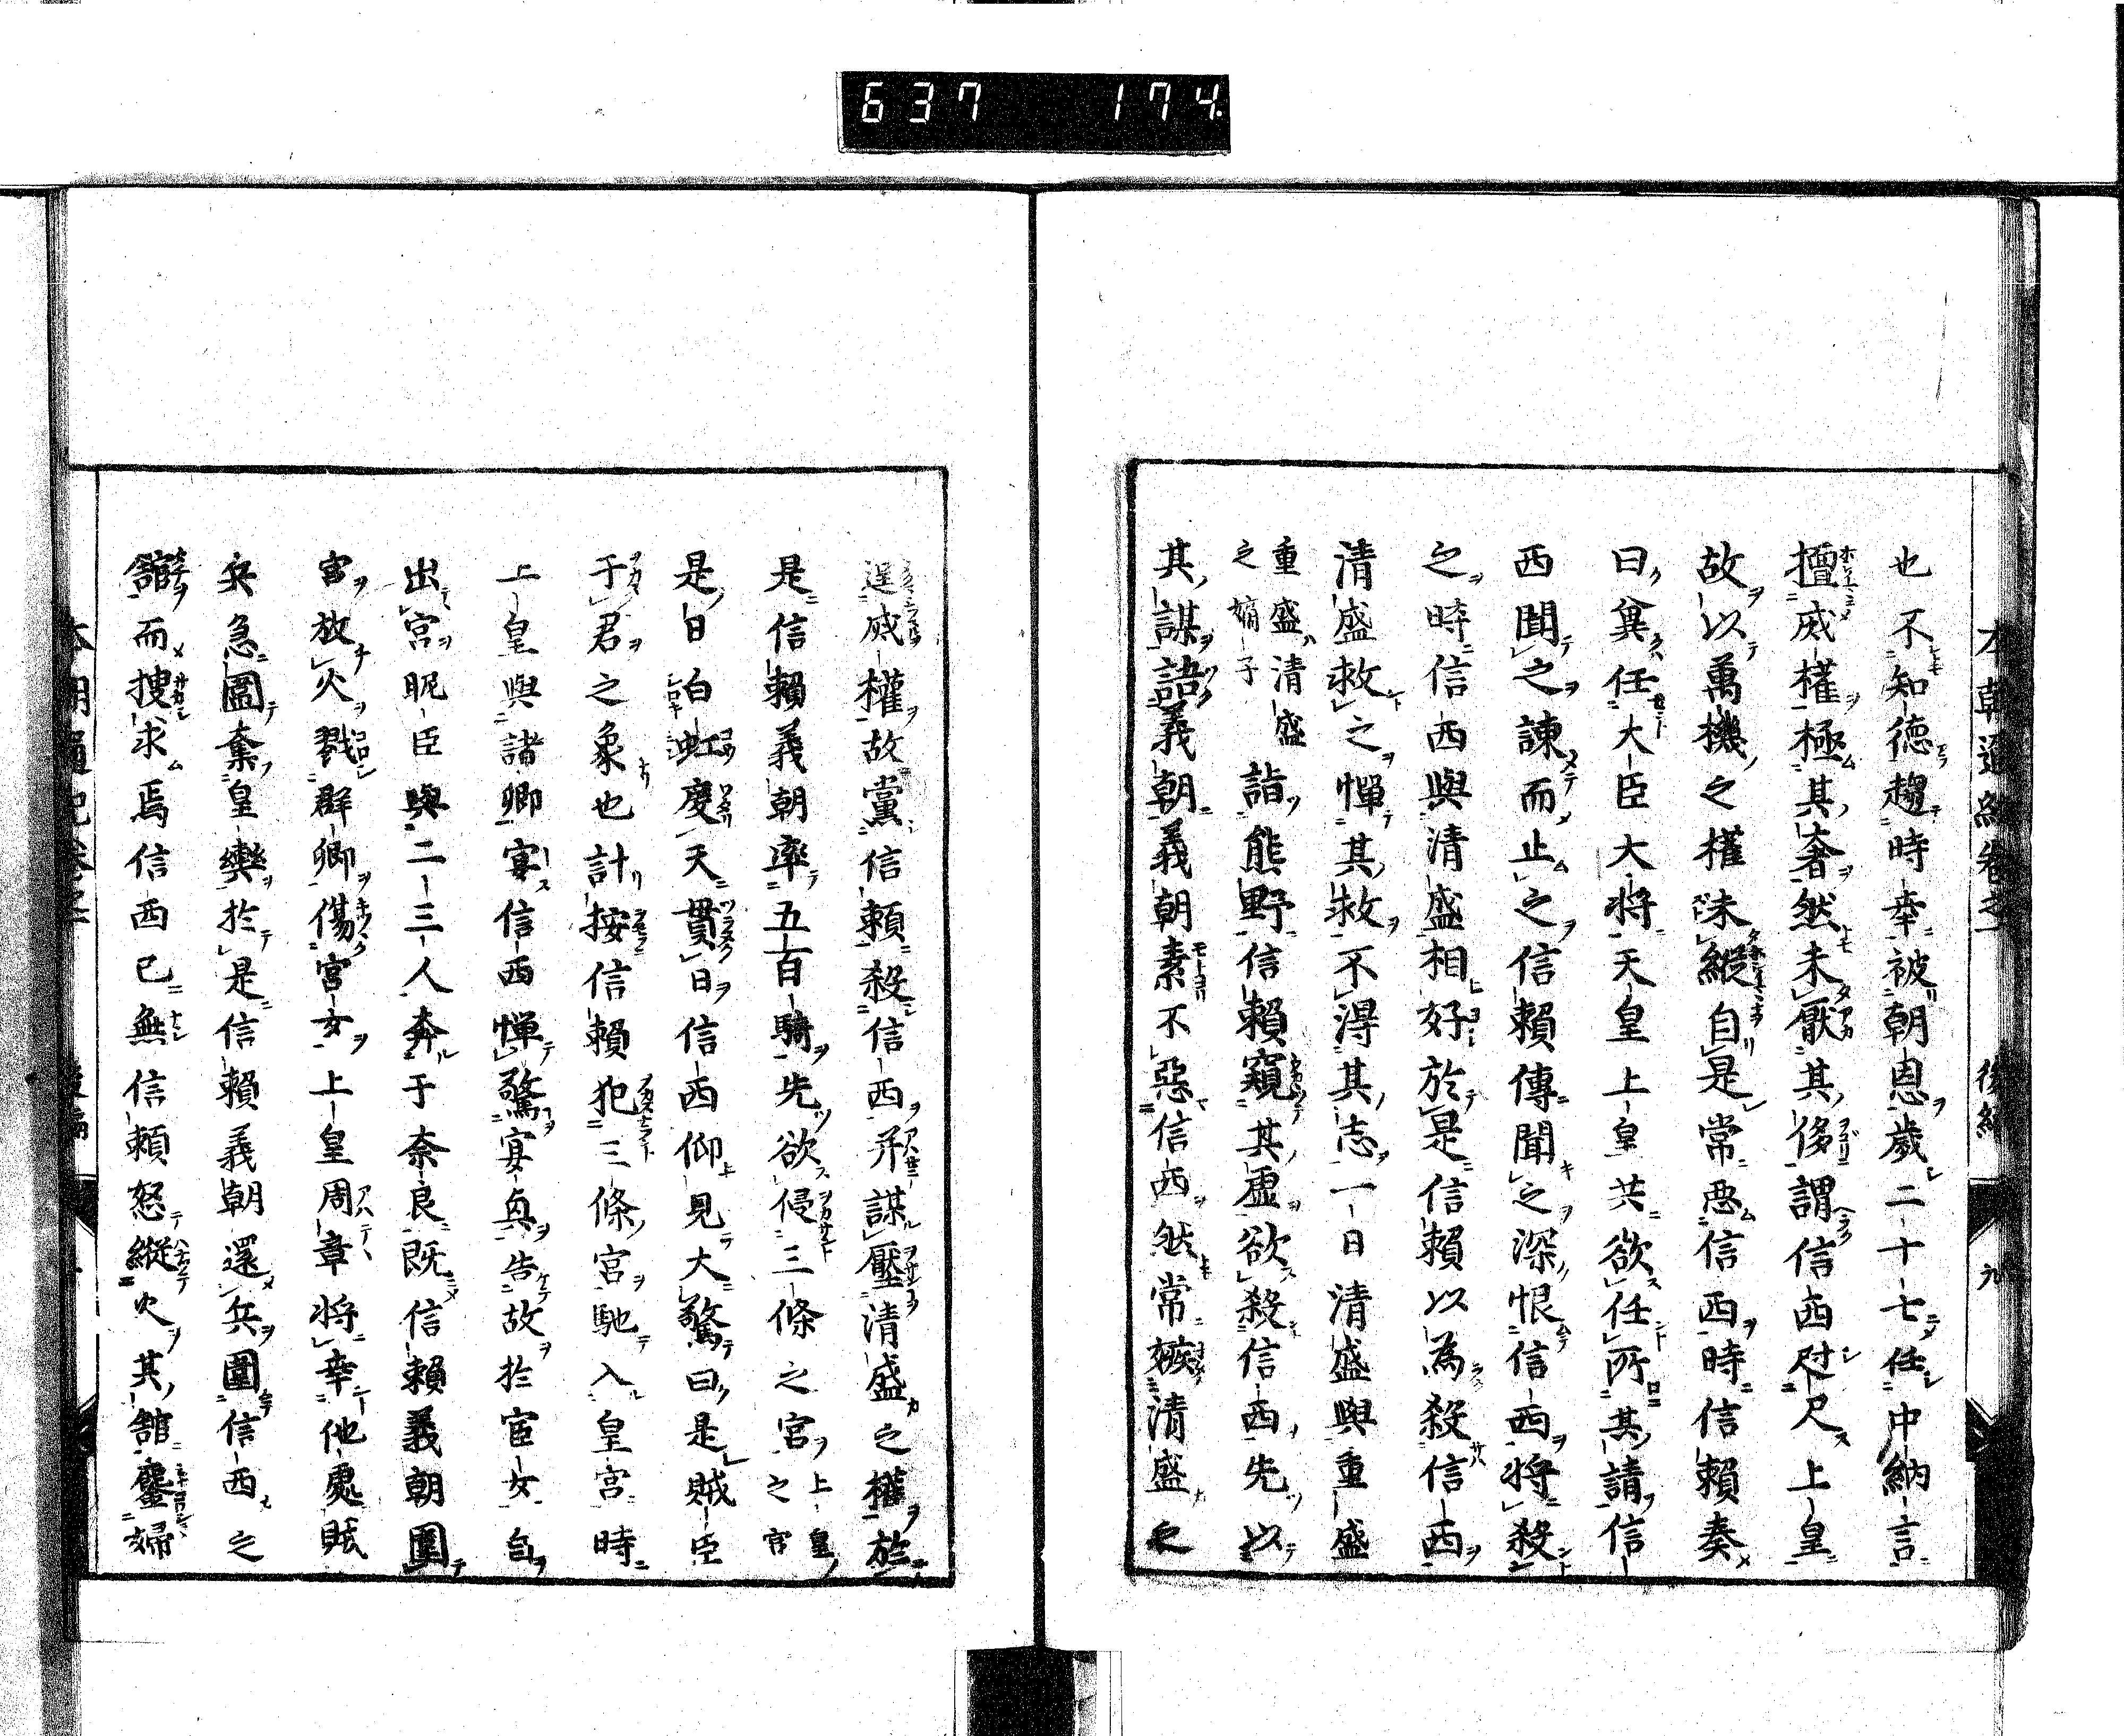 637 174
本朝通紀卷之 後編 九
也不知德趨時幸被朝恩歲二十七任中納言
擅威權極其奢然未厭其侈謂信西咫尺上皇
故以萬機之權未縱自是常惡信西時信賴奏
曰冀任大臣大將天皇上皇共欲任所其請信
西聞之諫而止之信賴傳聞之深恨信西將殺
之時信西與清盛相好於是信賴以為殺信西
清盛救之憚其救不得其志一日清盛與重盛
重盛清盛
之嫡子
詣熊野信賴窺其虛欲殺信西先以
其謀語義朝義朝素不惡信西然常嫉清盛之
逞威權故黨信賴殺信西并謀壓清盛之權於
是信賴義朝率五百騎先欲侵三條之宮
上皇
之宮
是日白虹慶天貫日信西仰見大驚曰是賊臣
于君之象也計按信賴犯三條宮馳入皇宮時
上皇與諸卿宴信西憚驚宴輿告故於宦女自
出宮昵臣與二三人奔于奈良既信賴義朝圍
宮放火戮群卿傷宮女上皇周章將幸他處賊
兵急圍奪皇轝於是信賴義朝還兵圍信西之
舘而搜求焉信西已無信賴怒縱火其舘鏖婦